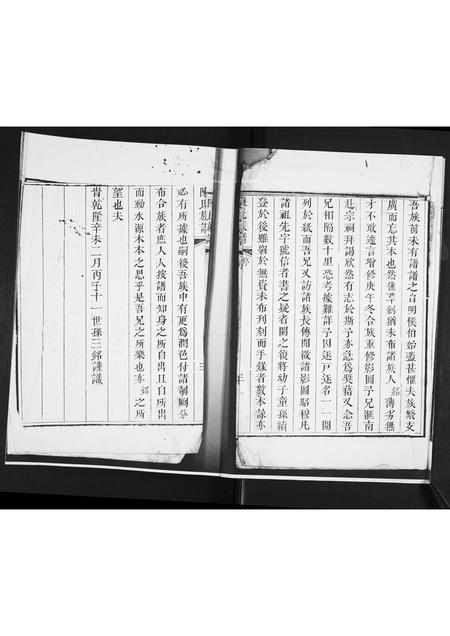 吾族前未有譜譜之自明侯伯始蓋甚懼夫族繁支
廣而忘其本也然僅草創猶未布諸族人銘薄劣無
才不敢遽言增修庚午冬合族重修影圖予兄滙南
赴宗祠拜謁欣然有志於斯予亦急為獎藉又念吾
兄相隔數十里恐考據難詳予因逐戸逐名一一開
列於紙而吾兄又訪諸族長傳聞徵諸影圖昭穆凡
諸祖先字號信者書之疑者闕之後將幼子童孫續
登於後雖窘於無資未布刋刻而手錄者數本諒亦
必有所據也嗣後吾族中有更為潤色付諸剞劂分
布合族者庶人人按譜而知身之所自出且
而動水源木本之思乎是吾兄之所樂也亦銘之所
望也夫
旹乾隆辛未二月丙子十一世孫三銘謹識
陳氏族譜